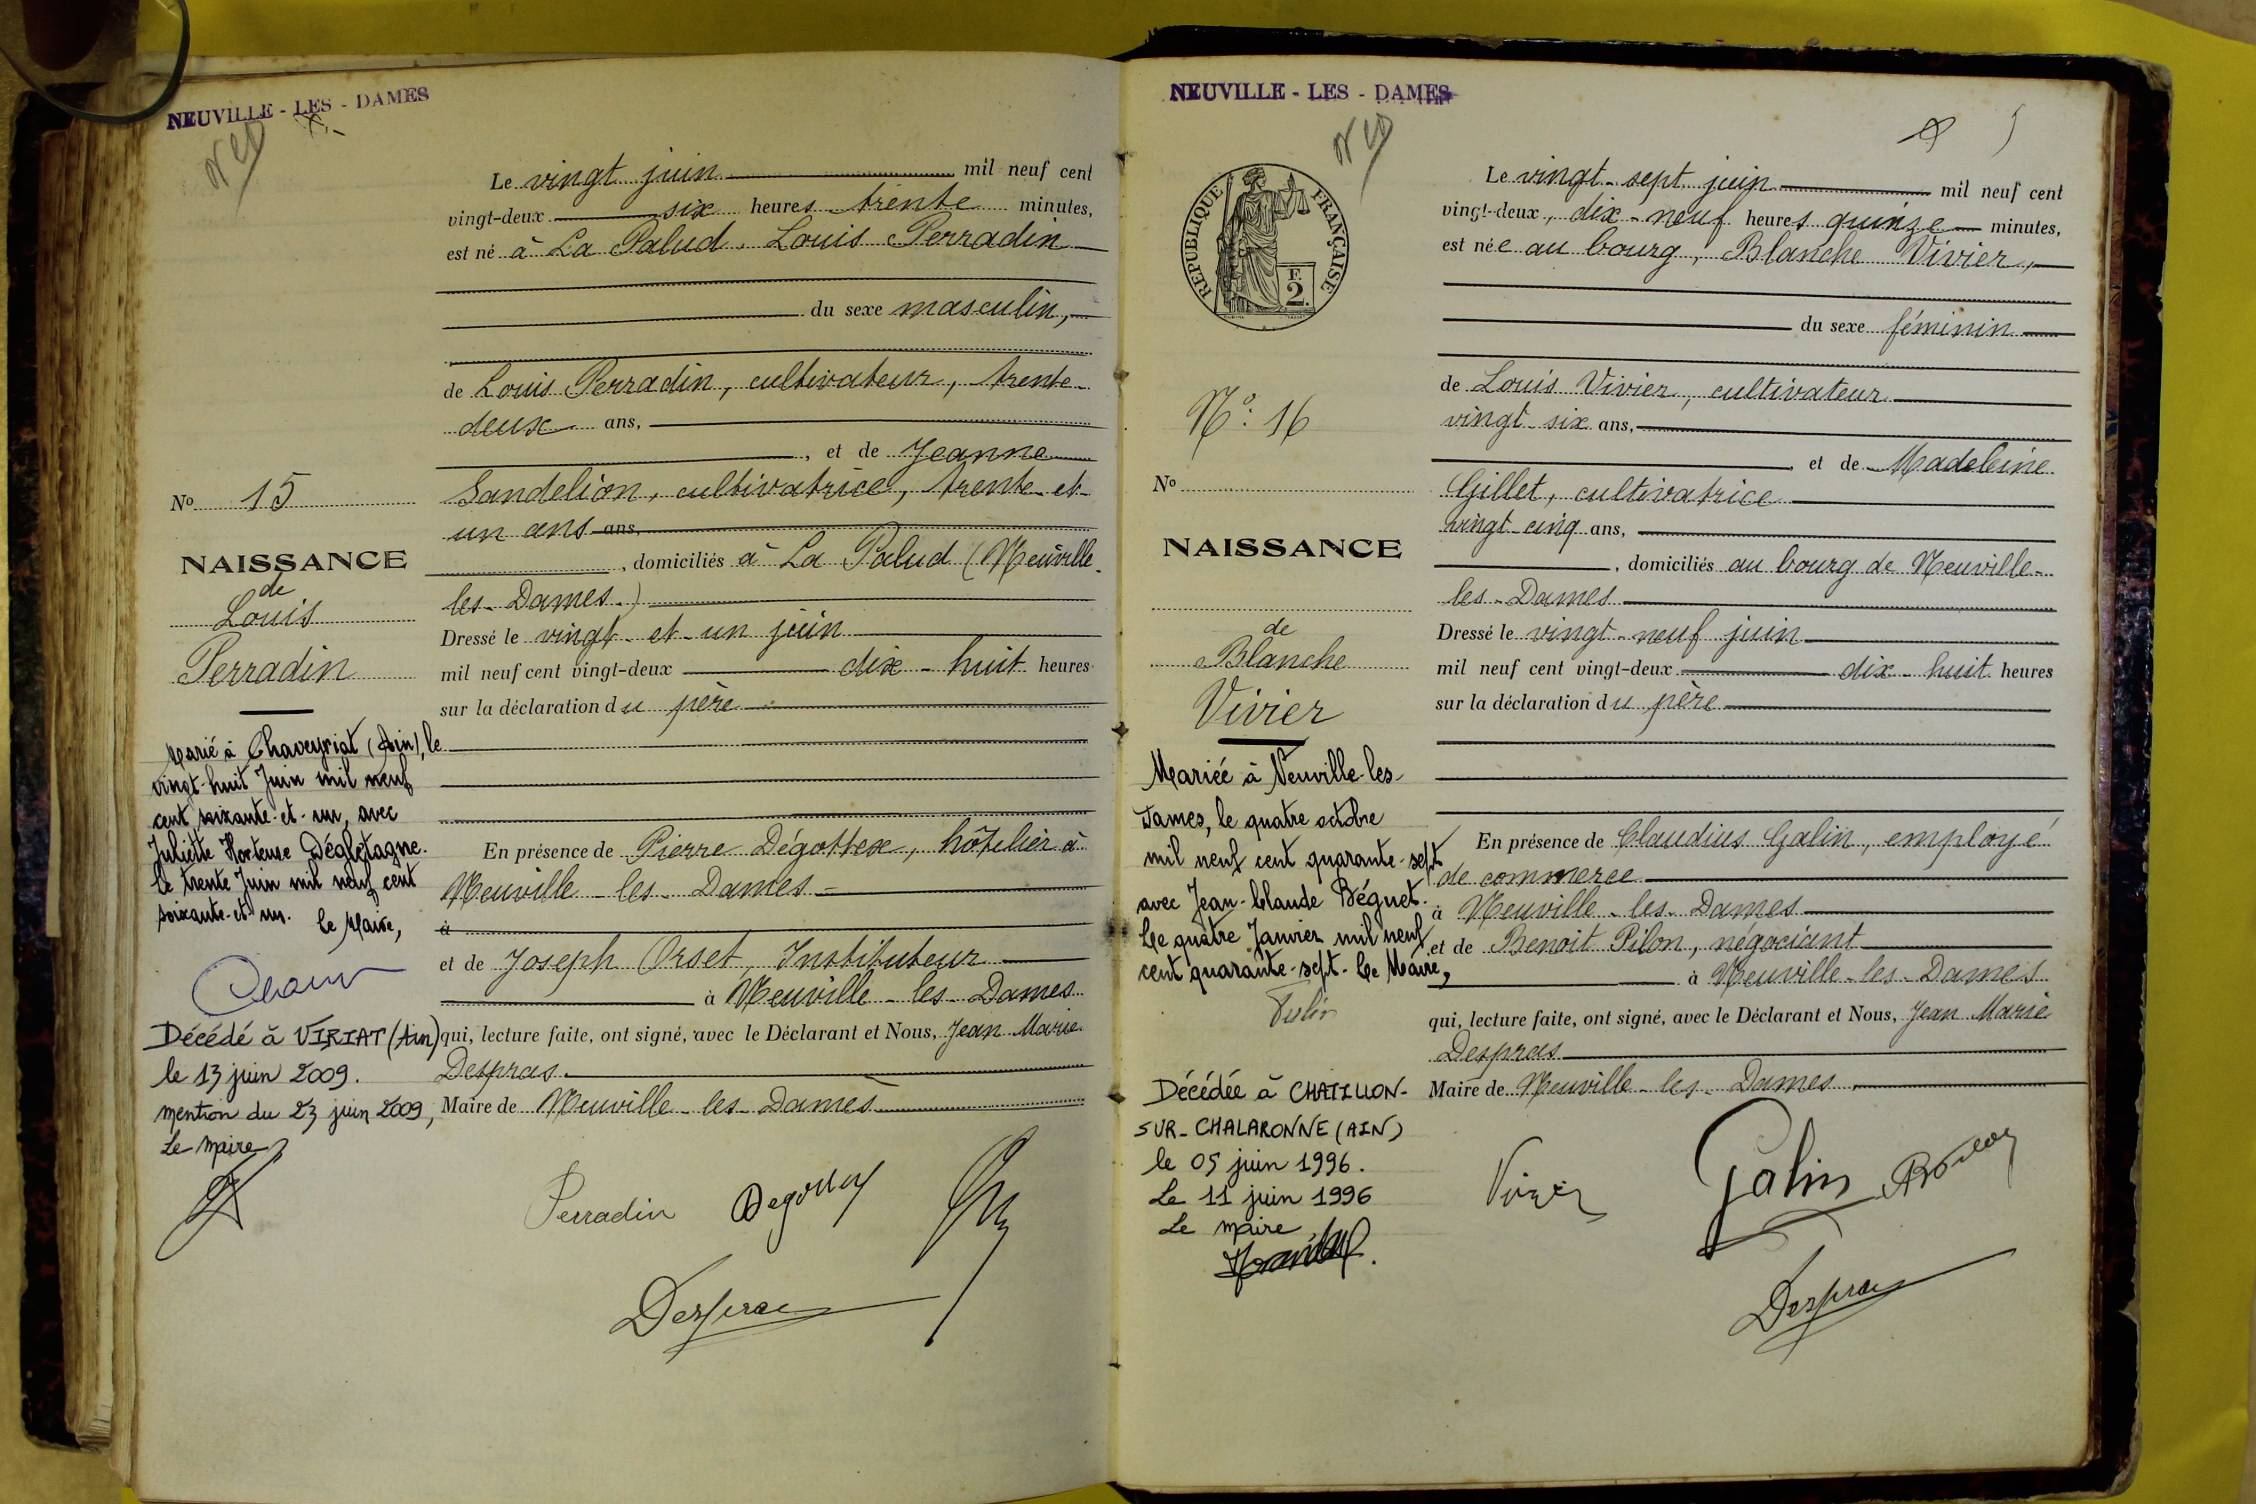 NEUVILLE - LES - DAMES
Le vingt juin mil neuf cent
vingt-deux six heures trente minutes,
est né à La Palud, Louis Perradin
du sexe masculin,
de Louis Perradin, cultivateur, trente-
deux ans,
, et de Jeanne
Sandelion, cultivatrice, trente et
un ans ans,
, domiciliés à La Palud (Neuville-
les-Dames.)
Dressé le vingt-et-un juin
mil neuf cent vingt-deux dix-huit heures
sur la déclaration du père
En présence de Pierre Dégottex, hôtelier à
Neuville-les-Dames
à
et de Joseph Orset, Instituteur
à Neuville-les-Dames
qui, lecture faite, ont signé, avec le Déclarant et Nous, Jean Marie
Despras
Maire de Neuville-les-Dames
Perradin Degottex
Despras
No 15
NAISSANCE
de
Louis
Perradin
Marié à Chaveyriat (Ain), le
vingt-huit Juin mil neuf
cent soixante-et-un, avec
Juliette Hortense Dégletagne.
Le trente Juin mil neuf cent
soixante-et-un. Le Maire,
Décédé à VIRIAT (Ain)
le 13 juin 2009.
mention du 23 juin 2009,
Le maire
NEUVILLE - LES - DAMES
REPUBLIQUE FRANÇAISE
F.
2.
Le vingt-sept juin mil neuf cent
vingt-deux, dix-neuf heures quinze minutes,
est née au bourg, Blanche Vivier,
du sexe féminin
de Louis Vivier, cultivateur
vingt-six ans,
et de Madeleine
Gillet, cultivatrice
vingt-cinq ans,
, domiciliés au bourg de Neuville-
les-Dames
Dressé le vingt-neuf juin
mil neuf cent vingt-deux dix-huit heures
sur la déclaration du père
En présence de Claudius Galin, employé
de commerce
à Neuville-les-Dames
et de Benoit Pilon, négociant
à Neuville-les-Dames
qui, lecture faite, ont signé, avec le Déclarant et Nous, Jean Marie
Despras
Maire de Neuville-les-Dames
Vivier Galin
Despras
No: 16
No
NAISSANCE
de
Blanche
Vivier
Mariée à Neuville-les-
Dames, le quatre octobre
mil neuf cent quarante-sept
avec Jean-Claude Béguet.
Le quatre Janvier mil neuf
cent quarante-sept. Le Maire,
Décédée à CHATILLON-
SUR-CHALARONNE (AIN)
le 05 juin 1996.
Le 11 juin 1996
Le maire